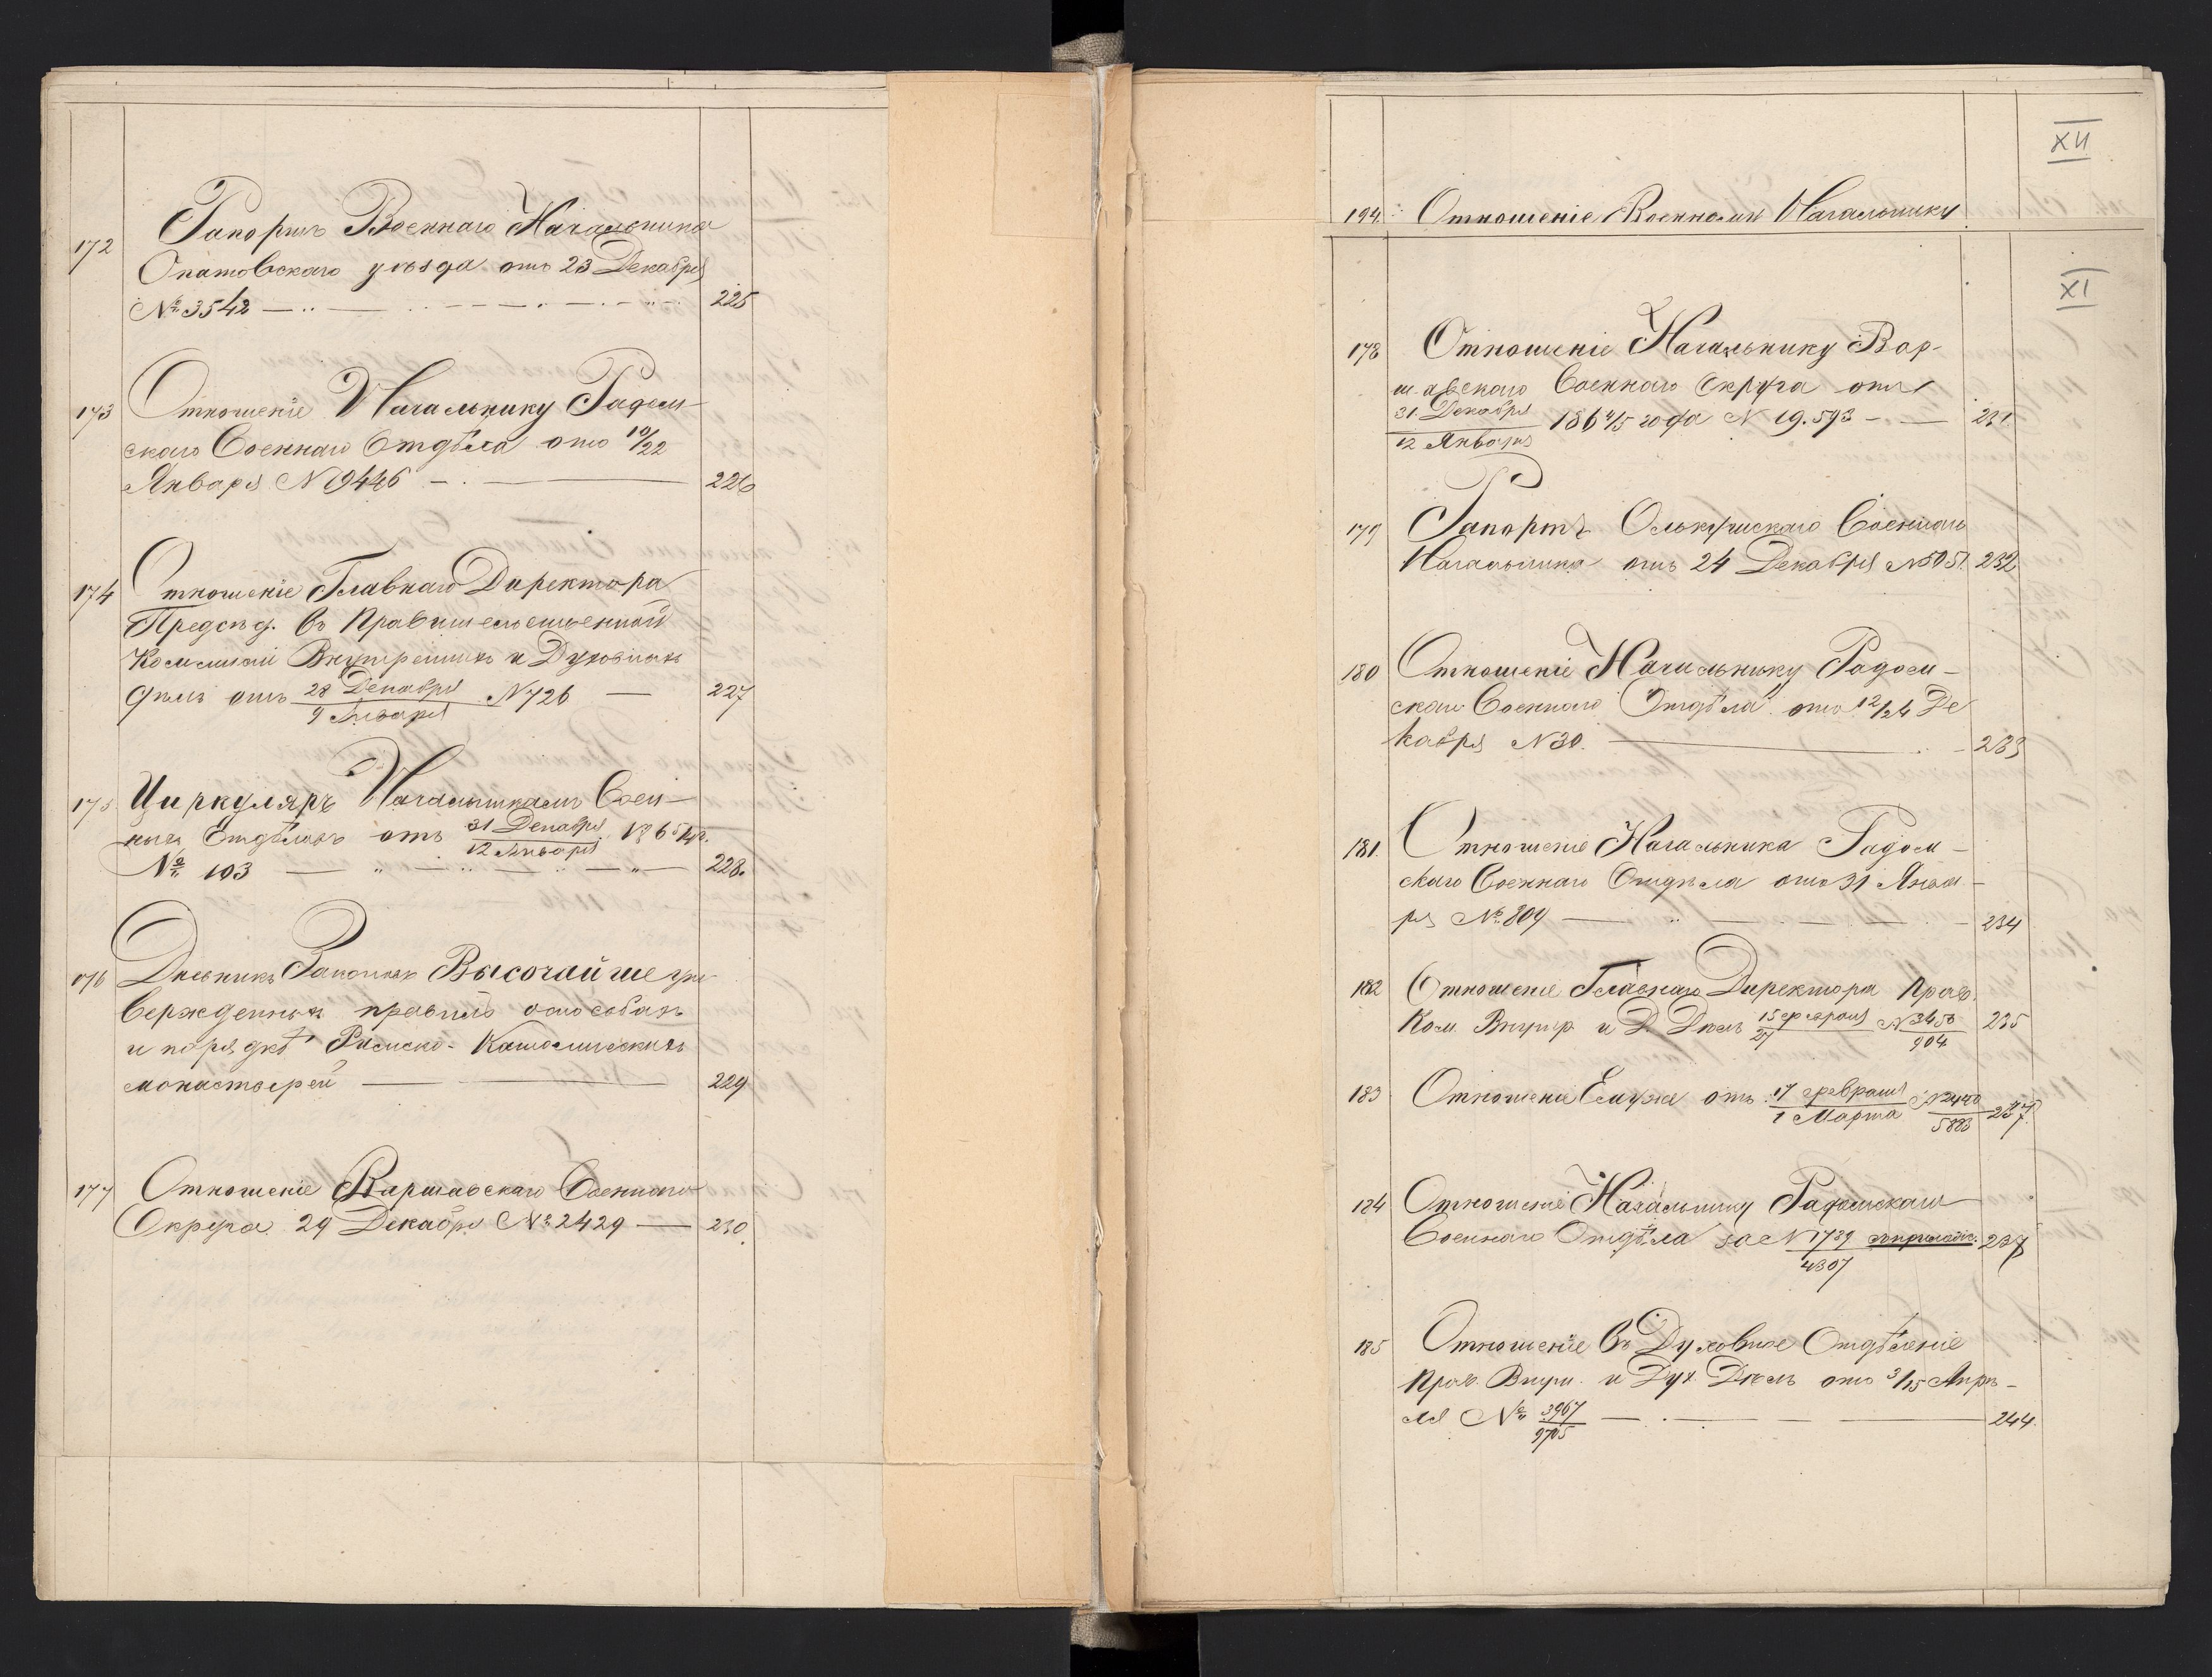 172 Рапортъ Военнаго Начальника
Опатовскаго уѣзда отъ 23 Декабря
№ 3542 225
173 Отношеніе Начальнику Радом-
скаго Военнаго Отдѣла отъ 10/22
Января N 9446 226
174 Отношеніе Главнаго Директора
Предсѣд. въ Правительственной
Коммисіи Внутреннихъ и Духовныхъ
дѣлъ отъ 28 Декабря / 9 Января N 726 227
175 Циркуляръ Начальникамъ Воен-
ныхъ Отдѣловъ отъ 31 Декабря / 12 Января
№ 103 228.
176 Дневникъ Законовъ Высочайше ут-
вержденныхъ правилъ о способахъ
и порядкѣ Римско-Католическихъ
монастырей 229
177 Отношеніе Варшавскаго Военнаго
Округа 29 Декабря № 2429 230.
XII
194. Отношеніе Военному Начальнику
XI
178 Отношеніе Начальнику Вар-
шавскаго Военнаго Округа отъ
31 Декабря / 12 Января 1864/5 года N 19.593 231
179 Рапортъ Олькушскаго Военнаго
Начальника отъ 24 Декабря N 5051. 232
180 Отношеніе Начальнику Радом-
скаго Военнаго Отдѣла отъ 12/24 Де
кабря N 30. 233
181. Отношеніе Начальника Радом-
скаго Военнаго Отдѣла отъ 31 Янва-
ря № 809 234
182 Отношеніе Главнаго Директора Прав.
Ком. Внутр. и Д. Дѣлъ 15 февраля / 27 N 3456 / 904 235
183 Отношеніе Ему же отъ 17 февраля / 1 Марта N 2440 / 5883 237.
184 Отношеніе Начальнику Радомскаго
Военнаго Отдѣла за N 1739 / 4307 съ прилож. 237
185 Отношеніе въ Духовное Отдѣленіе
Прав. Внутр. и Дух. Дѣлъ отъ 3/15 Апрѣ-
ля № 3967 / 9705 244.